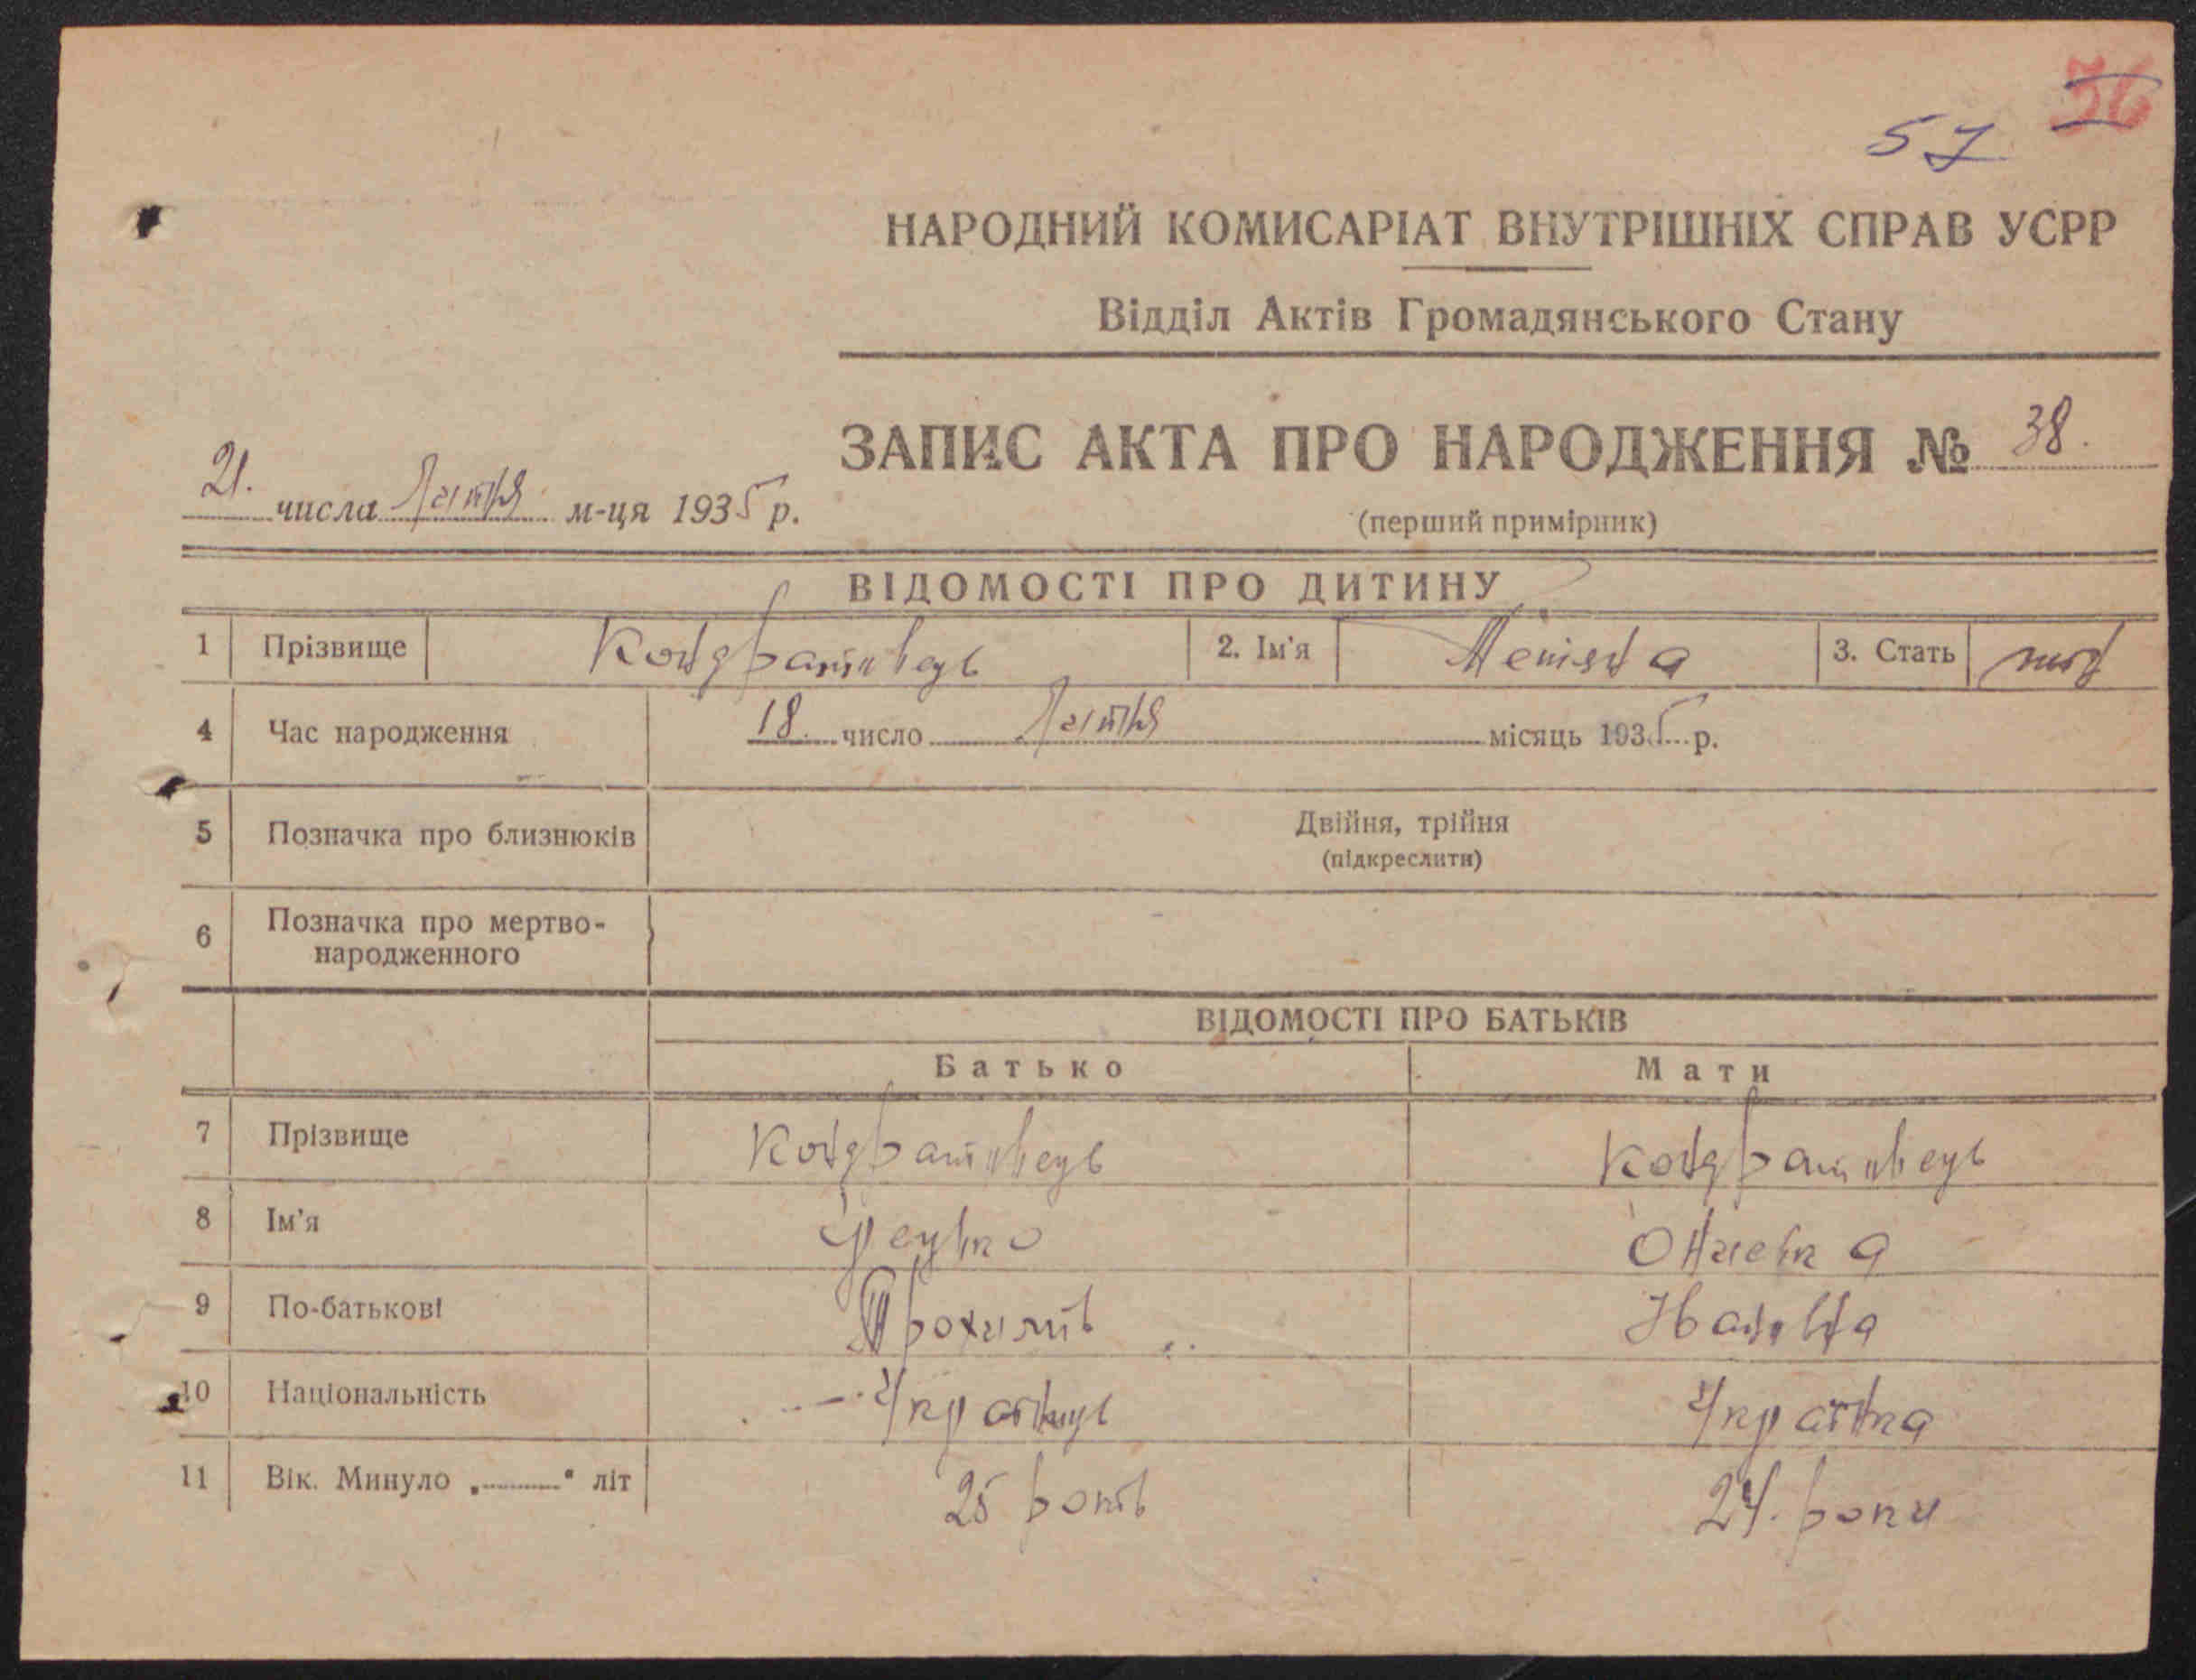 56
57
НАРОДНИЙ КОМИСАРІАТ ВНУТРІШНІХ СПРАВ УСРР
Відділ Актів Громадянського Стану
ЗАПИС АКТА ПРО НАРОДЖЕННЯ № 38.
21. числа м-ця 1935 р.
(перший примірник)
ВІДОМОСТІ ПРО ДИТИНУ
1 Прізвище Кондратівець 2. Ім'я 3. Стать
4 Час народження 18. число місяць 1935 р.
5 Позначка про близнюків Двійня, трійня
(підкреслити)
6 Позначка про мертво-
народженного
ВІДОМОСТІ ПРО БАТЬКІВ
Батько Мати
7 Прізвище Кондратівець Кондратівець
8 Ім'я
9 По-батькові Іванівна
10 Національність Українець Українка
11 Вік. Минуло „ “ літ 25 років 24. роки